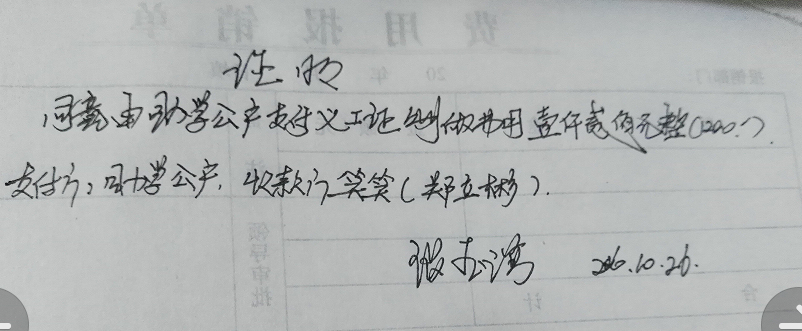 费用报销单
报销部门: 20 年
证明
同意由助学公户支付义工证制做费用壹仟贰佰元整(1200.-).
支付方:助学公户. 收款方笑笑(郑立彬).
2016.10.26.
领导审批
合 计